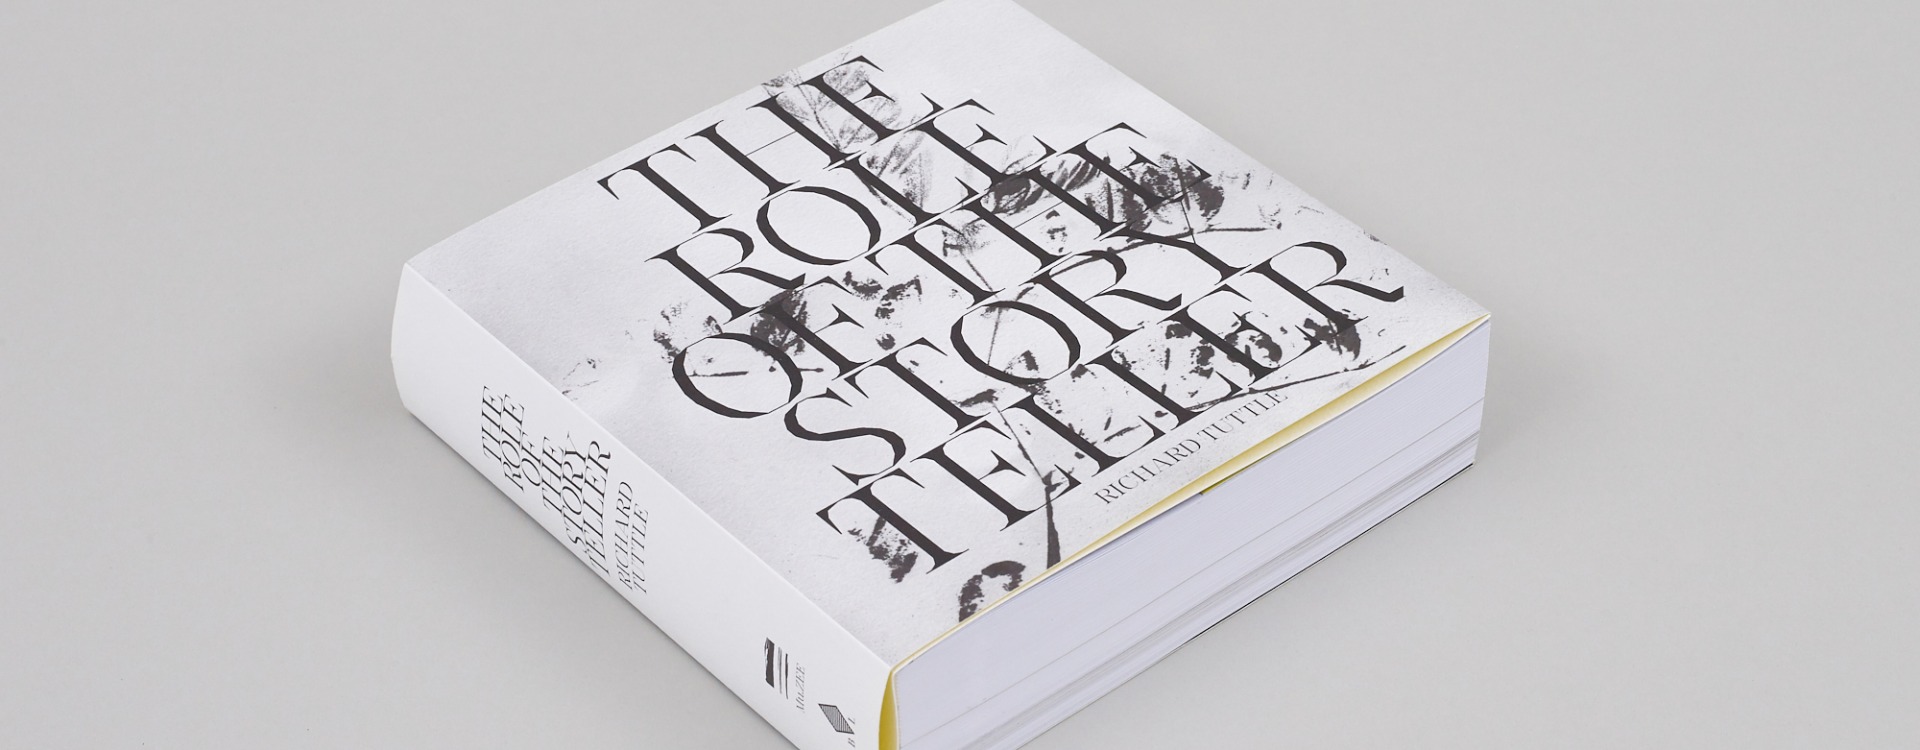 THE
ROLE
OF THE
STORY
TELLER
RICHARD TUTTLE
THE
ROLE
OF
THE
STORY
TELLER
RICHARD
TUTTLE
MuZEE